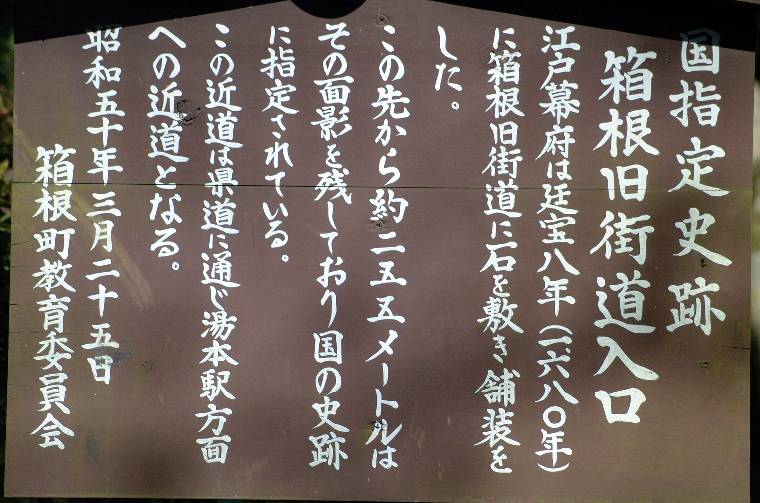 国指定史跡
箱根旧街道入口
江戸幕府は廷宝八年（一六八〇年）
に箱根旧街道に石を敷き舗装を
した。
この先から約二五五メートルは
その面影を残しており国の史跡
に指定されている。
この近道は県道に通じ湯本駅方面
への近道となる。
昭和五十年三月二十五日
箱根町教育委員会